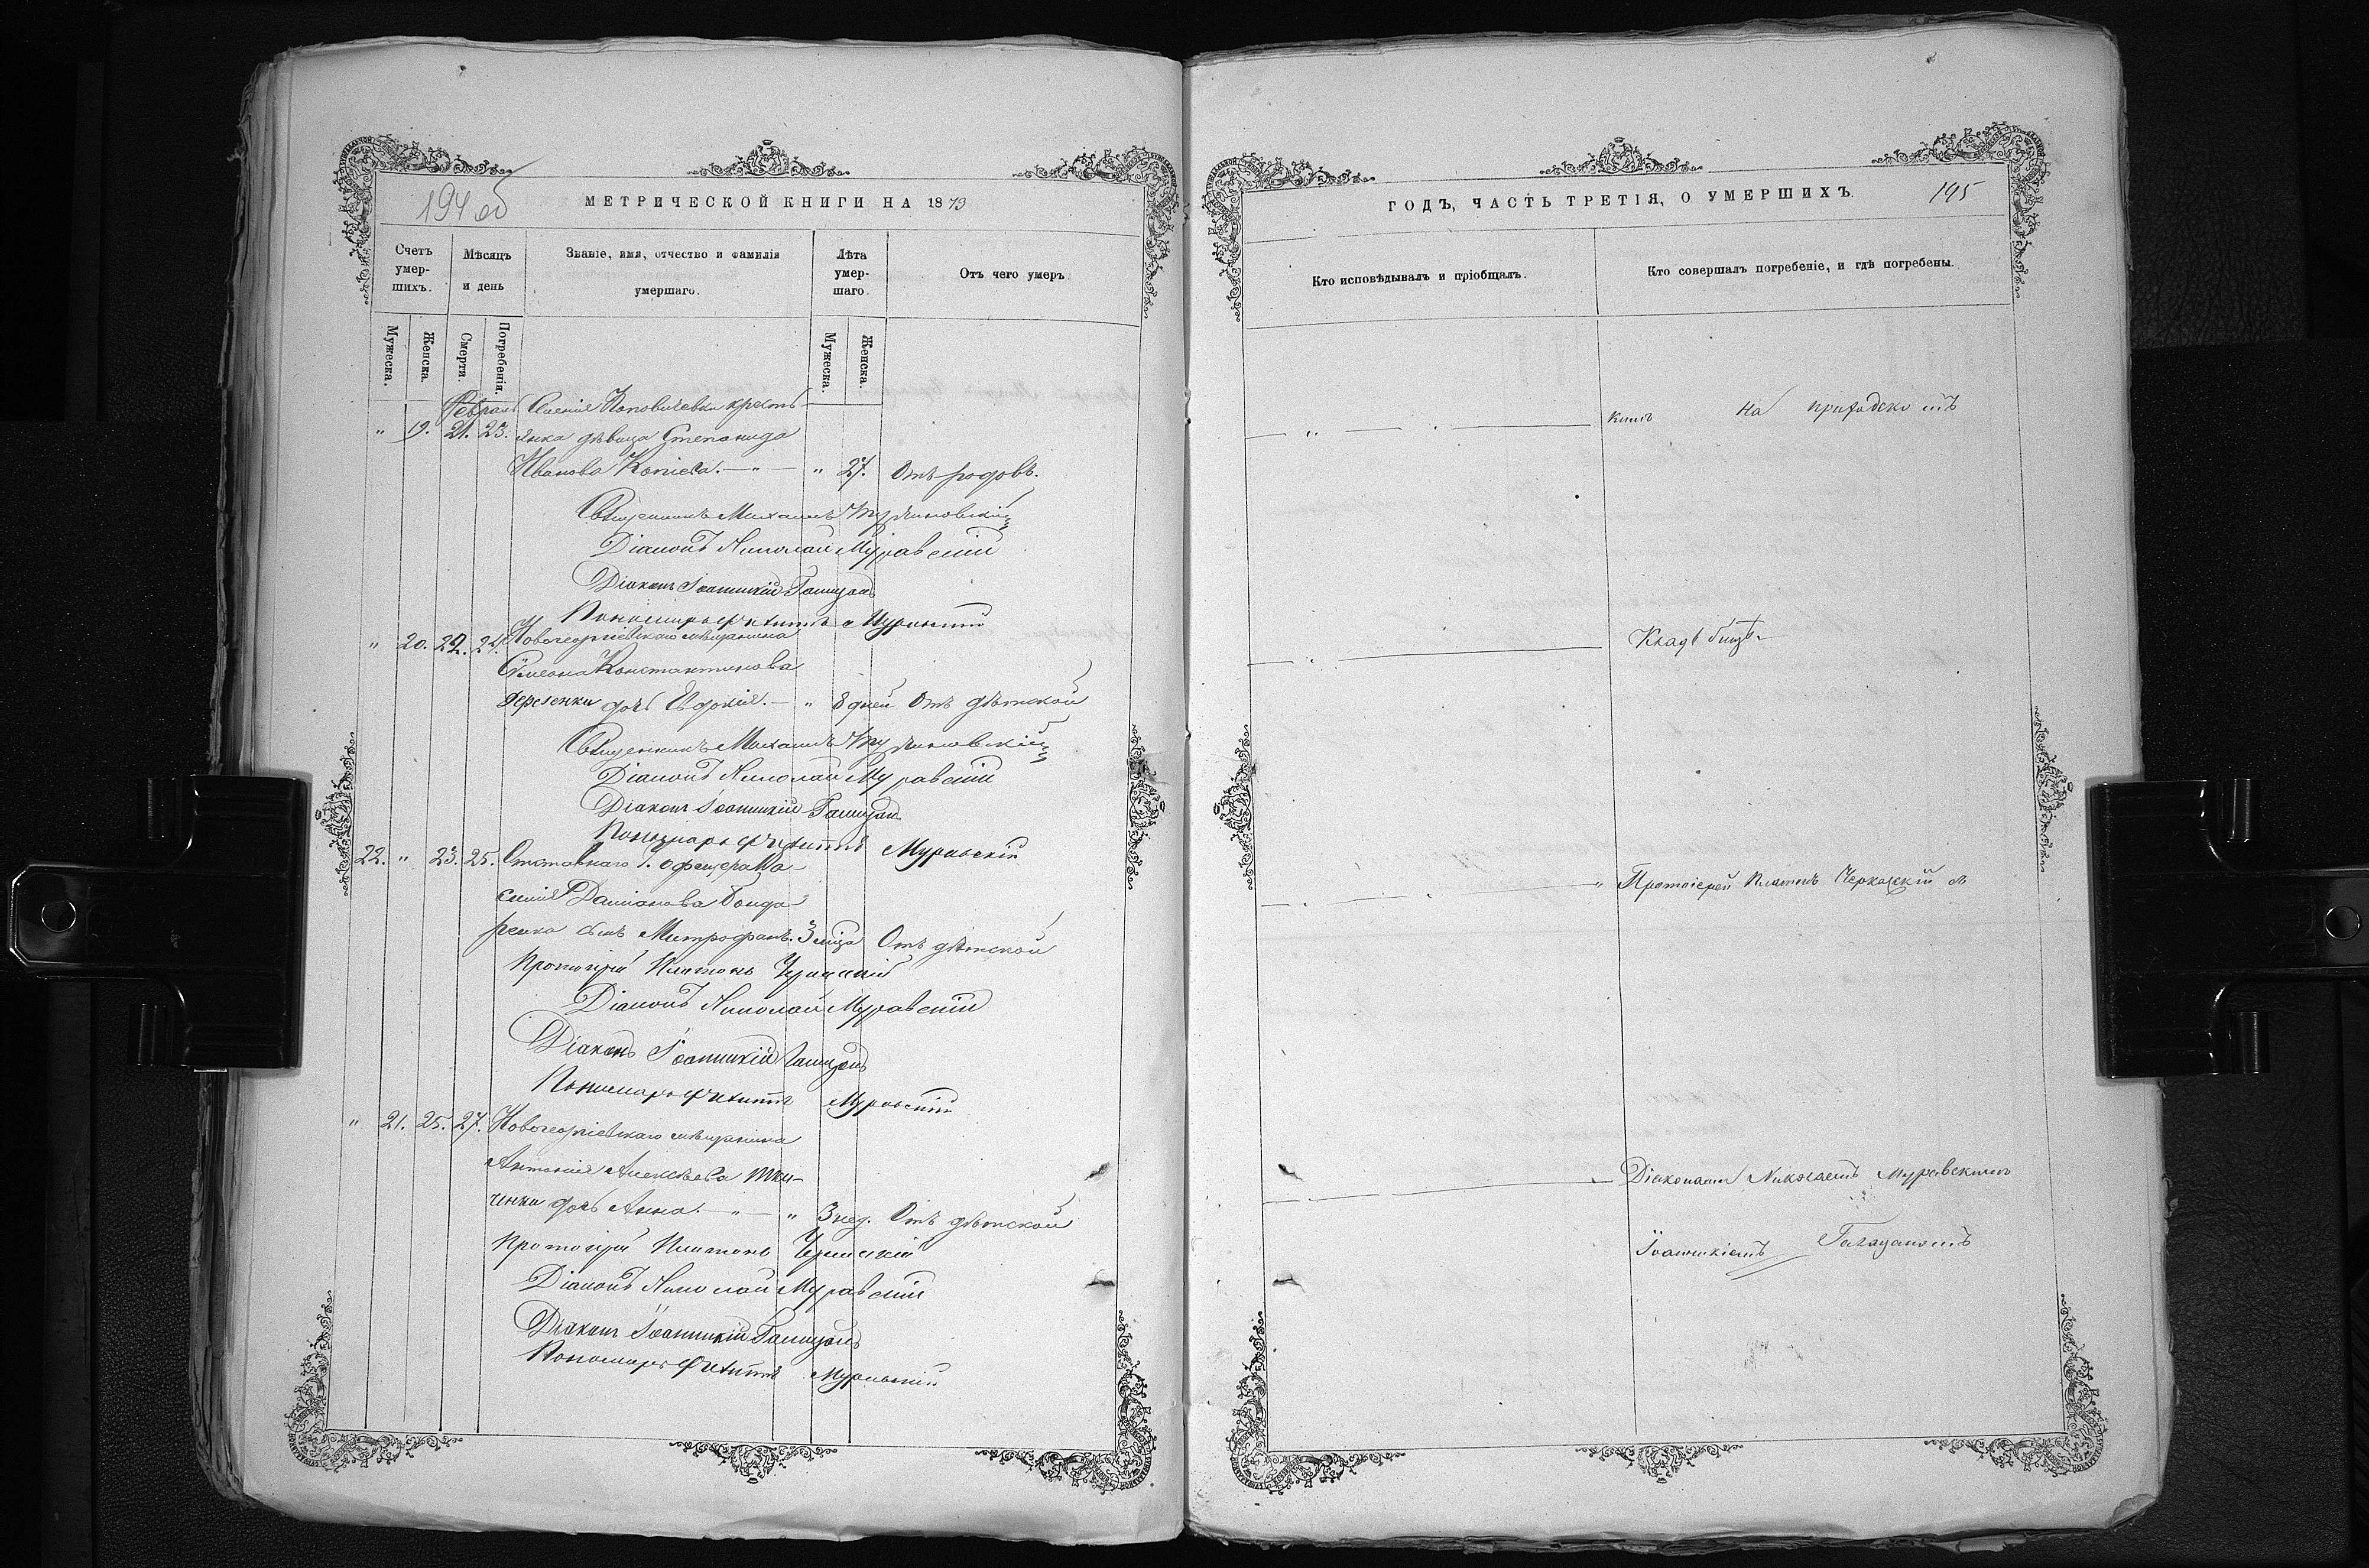 194 об
МЕТРИЧЕСКОЙ КНИГИ НА 1879
Счетъ умер-шихъ.
Мѣсяцъ и день
Званіе, имя, отчество и фамилія умершаго.
Лѣта умер-шаго.
Отъ чего умеръ
Мужеска.
Женска.
Смерти.
Погребенія.
Мужеска.
Женска.
Февраль Селенія Поповичевки кресть-
" 19. 21. 23. янка дѣвица Степонида
Иванова Копіева. — " — " 27. Отъ родовъ.
Священникъ Михаилъ
Діаконъ Николай Муравскій
Діаконъ Іоанникій
Пономарь Филиппъ Муравскій
" 20. 22. 24. Новогеоргіевскаго мѣщанина
Симеона Константинова
дочь Евдокія. — " 8 дней Отъ дѣтской
Священникъ Михаилъ
Діаконъ Николай Муравскій
Діаконъ Іоанникій
Пономарь Филиппъ Муравскій
22. " 23. 25. Отставнаго У. офицера Ва-
силія Даміанова Бонда-
ренка сынъ Митрофанъ. 3 мѣца Отъ дѣтской
Протоіерей Платонъ Черкасскій
Діаконъ Николай Муравскій
Діаконъ Іоанникій
Пономарь Филиппъ Муравскій
" 21. 25. 27. Новогеоргіевскаго мѣщанина
Антонія Алексѣева Тка-
ченка дочь Анна. — " — " 3 нед. Отъ дѣтской
Протоіерей Платонъ Черкасскій
Діаконъ Николай Муравскій
Діаконъ Іоанникій
Пономарь Филиппъ Муравскій
ГОДЪ, ЧАСТЬ ТРЕТІЯ, О УМЕРШИХЪ.
195
Кто исповѣдывалъ и пріобщалъ.
Кто совершалъ погребеніе, и гдѣ погребены.
на приходскомъ
Кладбищѣ
" Протоіерей Платонъ Черкасскій съ
Діаконами Николаемъ Муравскимъ
Іоанникіемъ